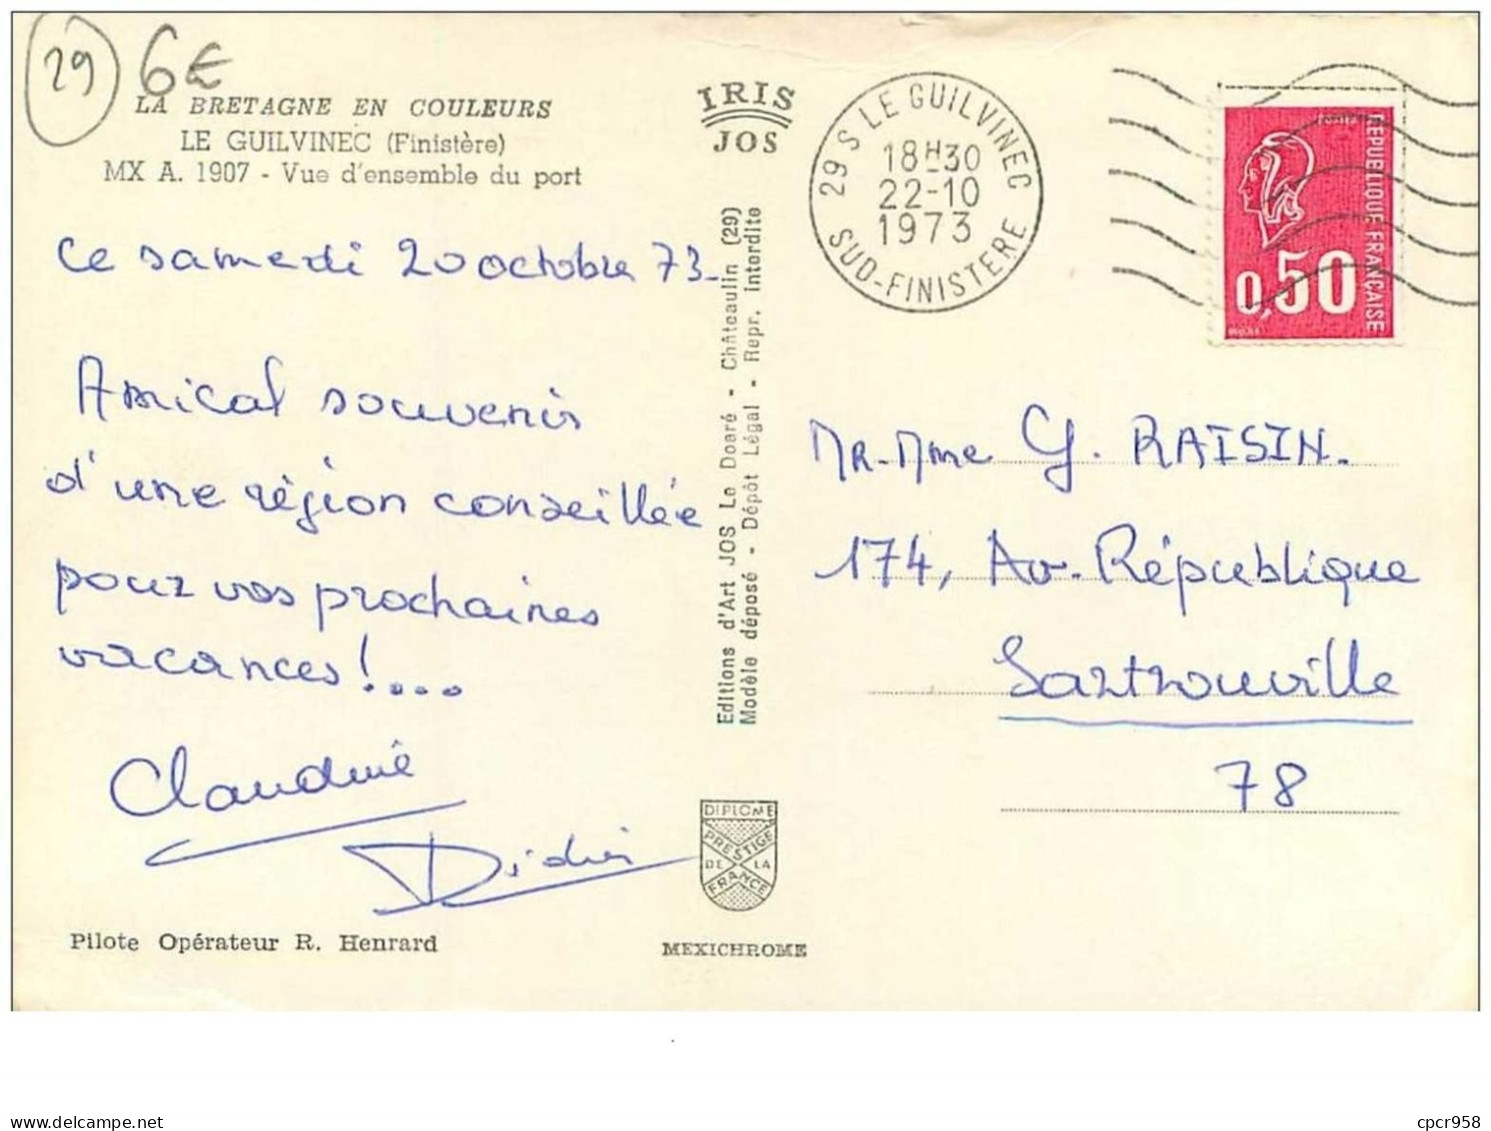 29
6€
LA BRETAGNE EN COULEURS
LE GUILVINEC (Finistère)
MX A. 1907 - Vue d'ensemble du port
Ce samedi 20 octobre 73-
Amical souvenir
d'une région conseillée
pour vos prochaines
vacances!....
Claudine
Didier
Pilote Opérateur R. Henrard
IRIS
JOS
Editions d'Art JOS Le Doaré - Châteaulin (29)
Modèle déposé - Dépôt Légal - Repr. interdite
DIPLOME
PRESTIGE
DE LA
FRANCE
MEXICHROME
29 S LE GUILVINEC
18H30
22-10
1973
SUD-FINISTERE
REPUBLIQUE FRANÇAISE
0,50
MR. Mme G. RAISIN.
174, Av. République
Sartrouville
78
cpcr958